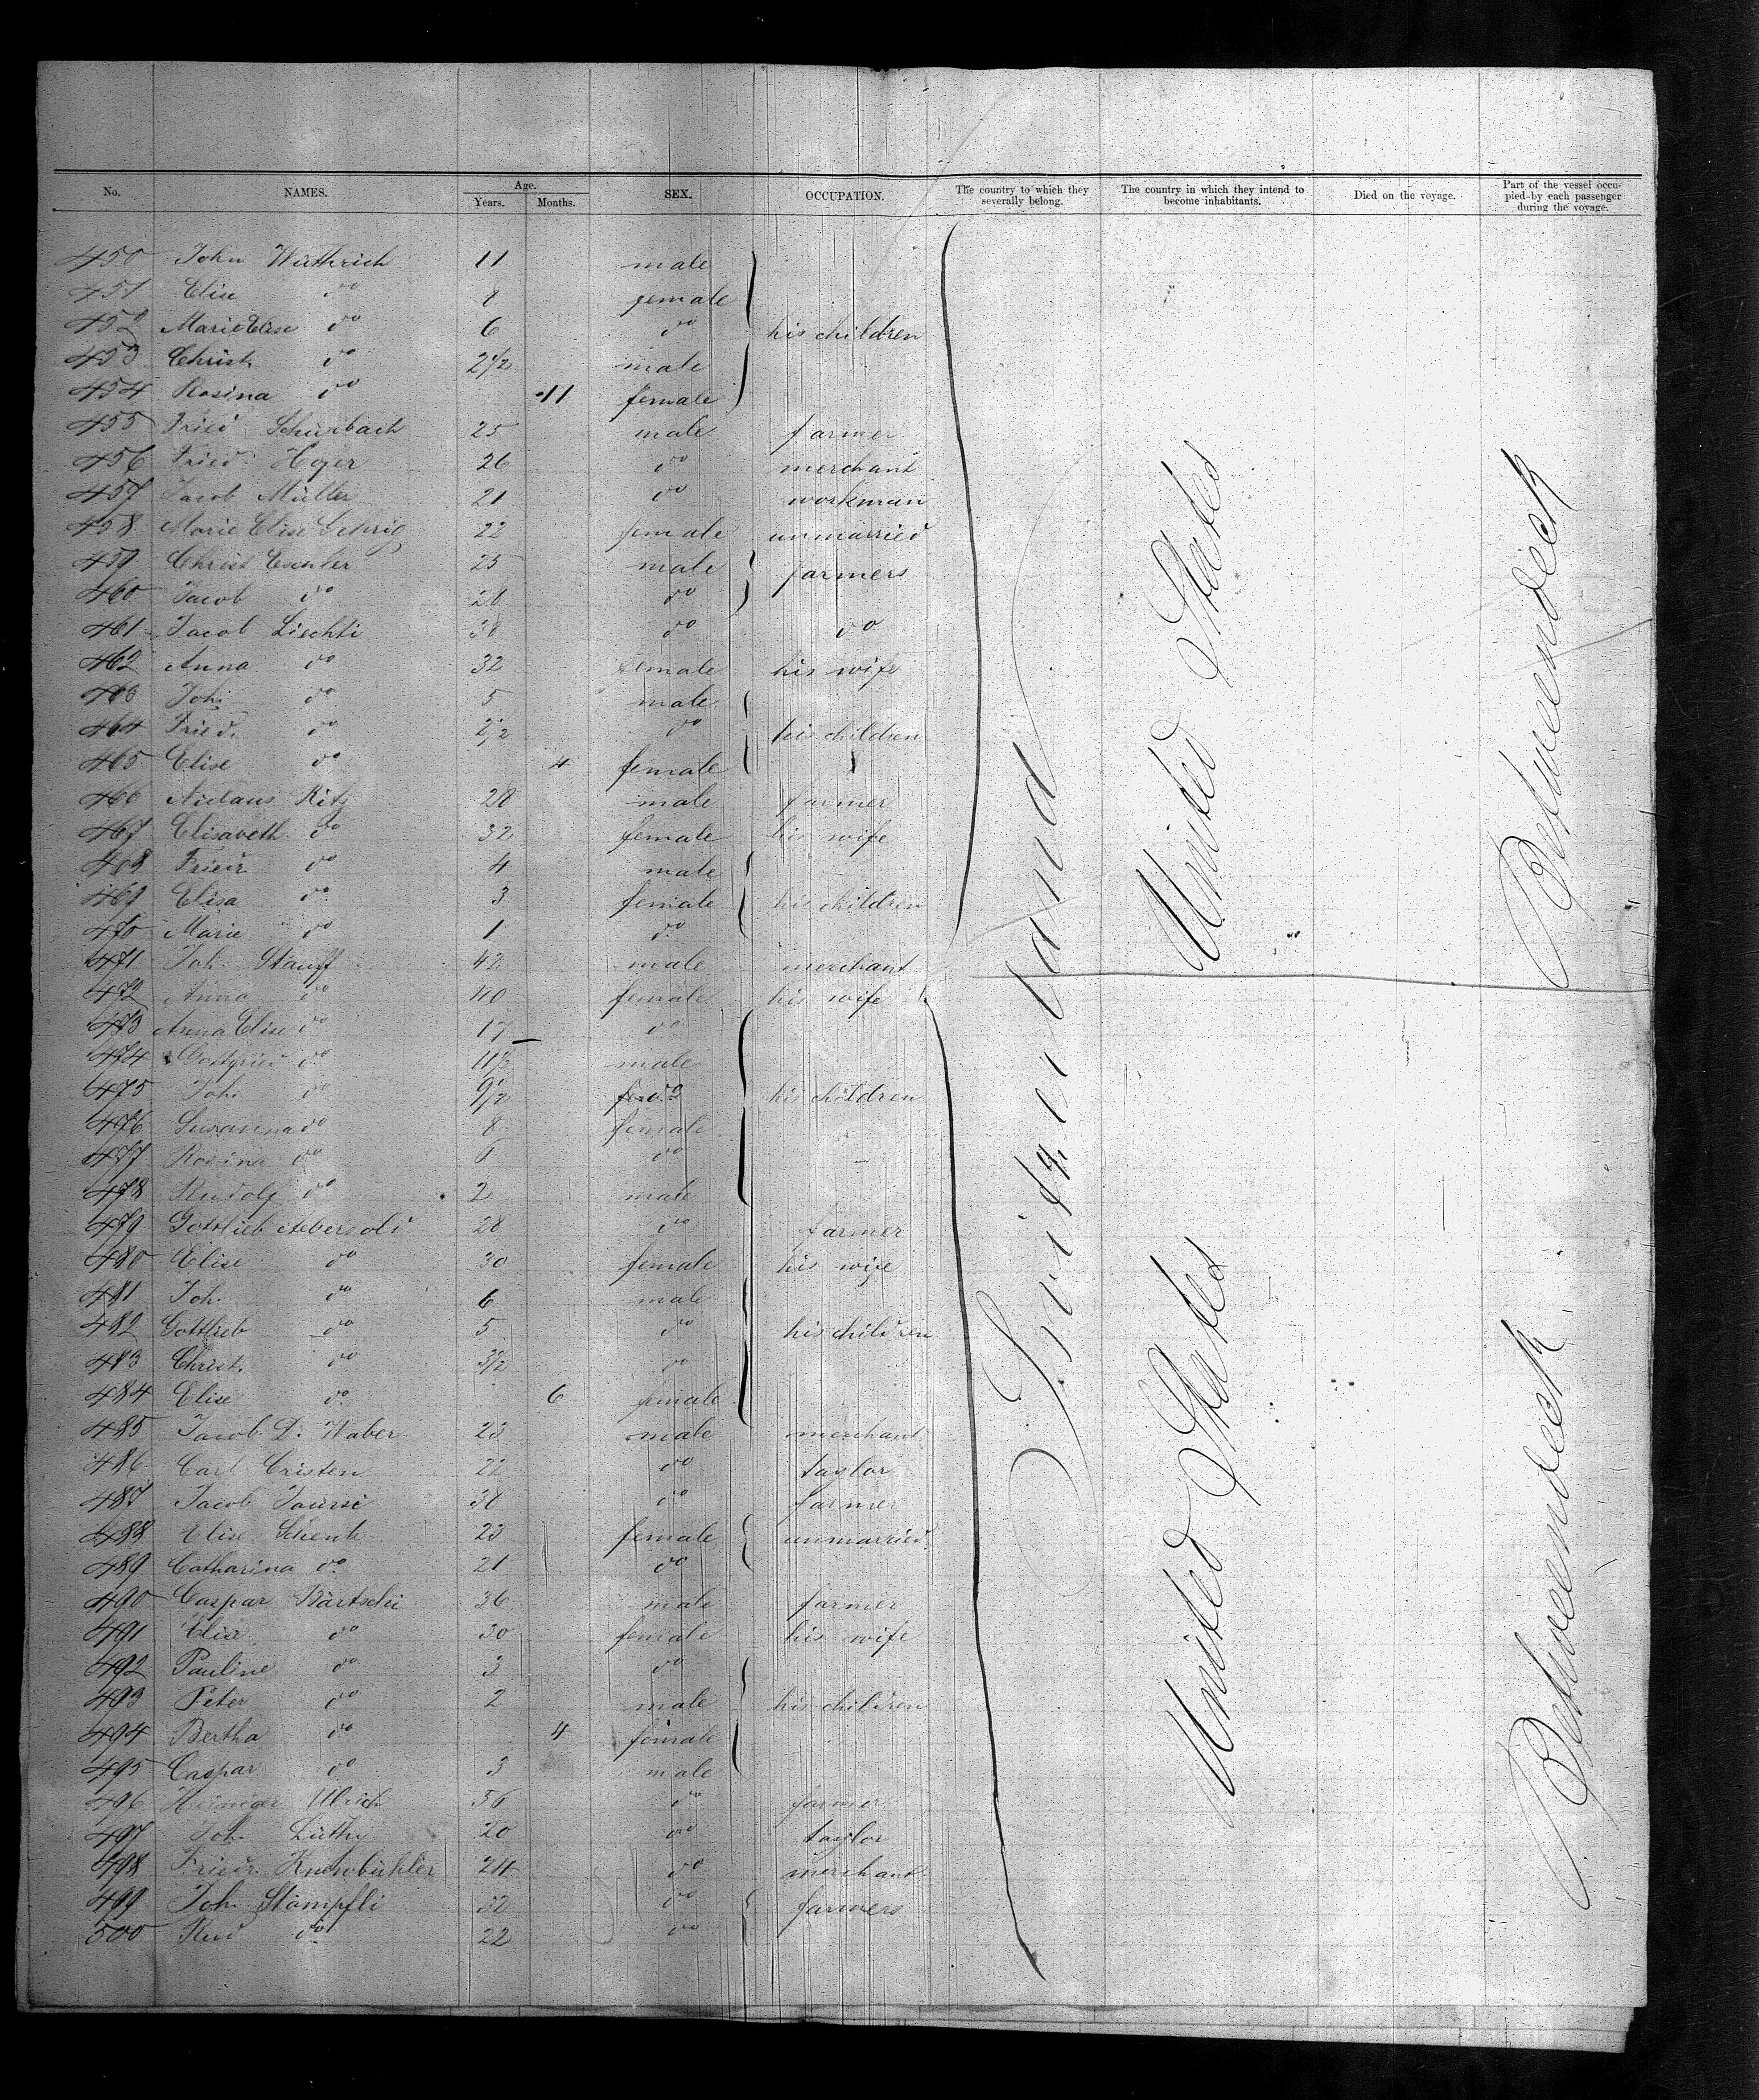 No. NAMES. Age. Years. Months. SEX. OCCUPATION. The country to which they severally belong. The country in which they intend to become inhabitants. Died on the voyage. Part of the vessel occupied by each passenger during the voyage.
450 John Wüthrich 11 male
451 Elise do 8 female
452 Marie Elise do 6 do his children
453 Christ. do 2 1/2 male
454 Rosina do 11 female
455 Fried 25 male farmer
456 Fried. 26 do merchant
457 Jacob Müller 21 do workman
458 Marie Elise Gehrig 22 female unmarried
459 Christ 25 male farmers
460 Jacob do 28 do
461 Jacob Liechti 38 do do
462 Anna do 32 female his wife
463 Joh. do 5 male
464 Fried. do 2 1/2 do his children
465 Elise do 4 female
466 Niclaus Ritz 28 male farmer
467 Elisaveth do 32 female his wife
468 Friedr do 4 male
469 Elisa do 3 female his children
470 Marie do 1 do
471 Joh. Stauff 42 male merchant
472 Anna do 40 female his wife
473 Anna Elise do 17 do
474 Gottfried do 11 1/2 male
475 Joh. do 9 1/2 do his children
476 Susanna do 8 female
477 Rosina do 6 do
478 Rudolf do 2 male
479 Gottlieb Aebersold 28 do farmer
480 Elise do 30 female his wife
481 Joh. do 6 male
482 Gottlieb do 5 do his children
483 Christ. do 3 1/2 do
484 Elise do 6 female
485 Jacob D. Waber 23 male merchant
486 Carl Cristen 22 do taylor
487 Jacob 38 do farmer
488 Elise Schenk 23 female unmarried
489 Catharina do 21 do
490 Caspar Bärtschi 36 male farmer
491 Elise do 30 female his wife
492 Pauline do 3 do
493 Peter do 2 male his children
494 Bertha do 4 female
495 Caspar do 3 male
496 Heiniger Ulrich 36 do farmer
497 Joh. Lüthy 20 do taylor
498 Friedr. Kneubühler 24 do merchant
499 Joh. Stämpfli 32 do farmers
500 Rud do 22 do
Switzerland
United States
Betweendeck
United States
Betweendeck